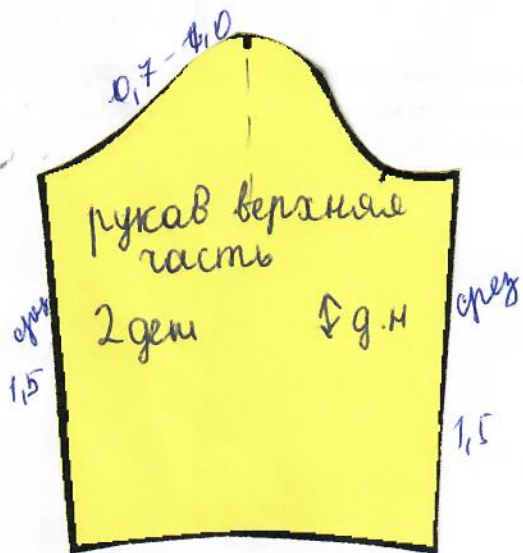 0,7-1,0
рукав верхняя
часть
2 дет
↕ д.н
срез
срез
1,5
1,5